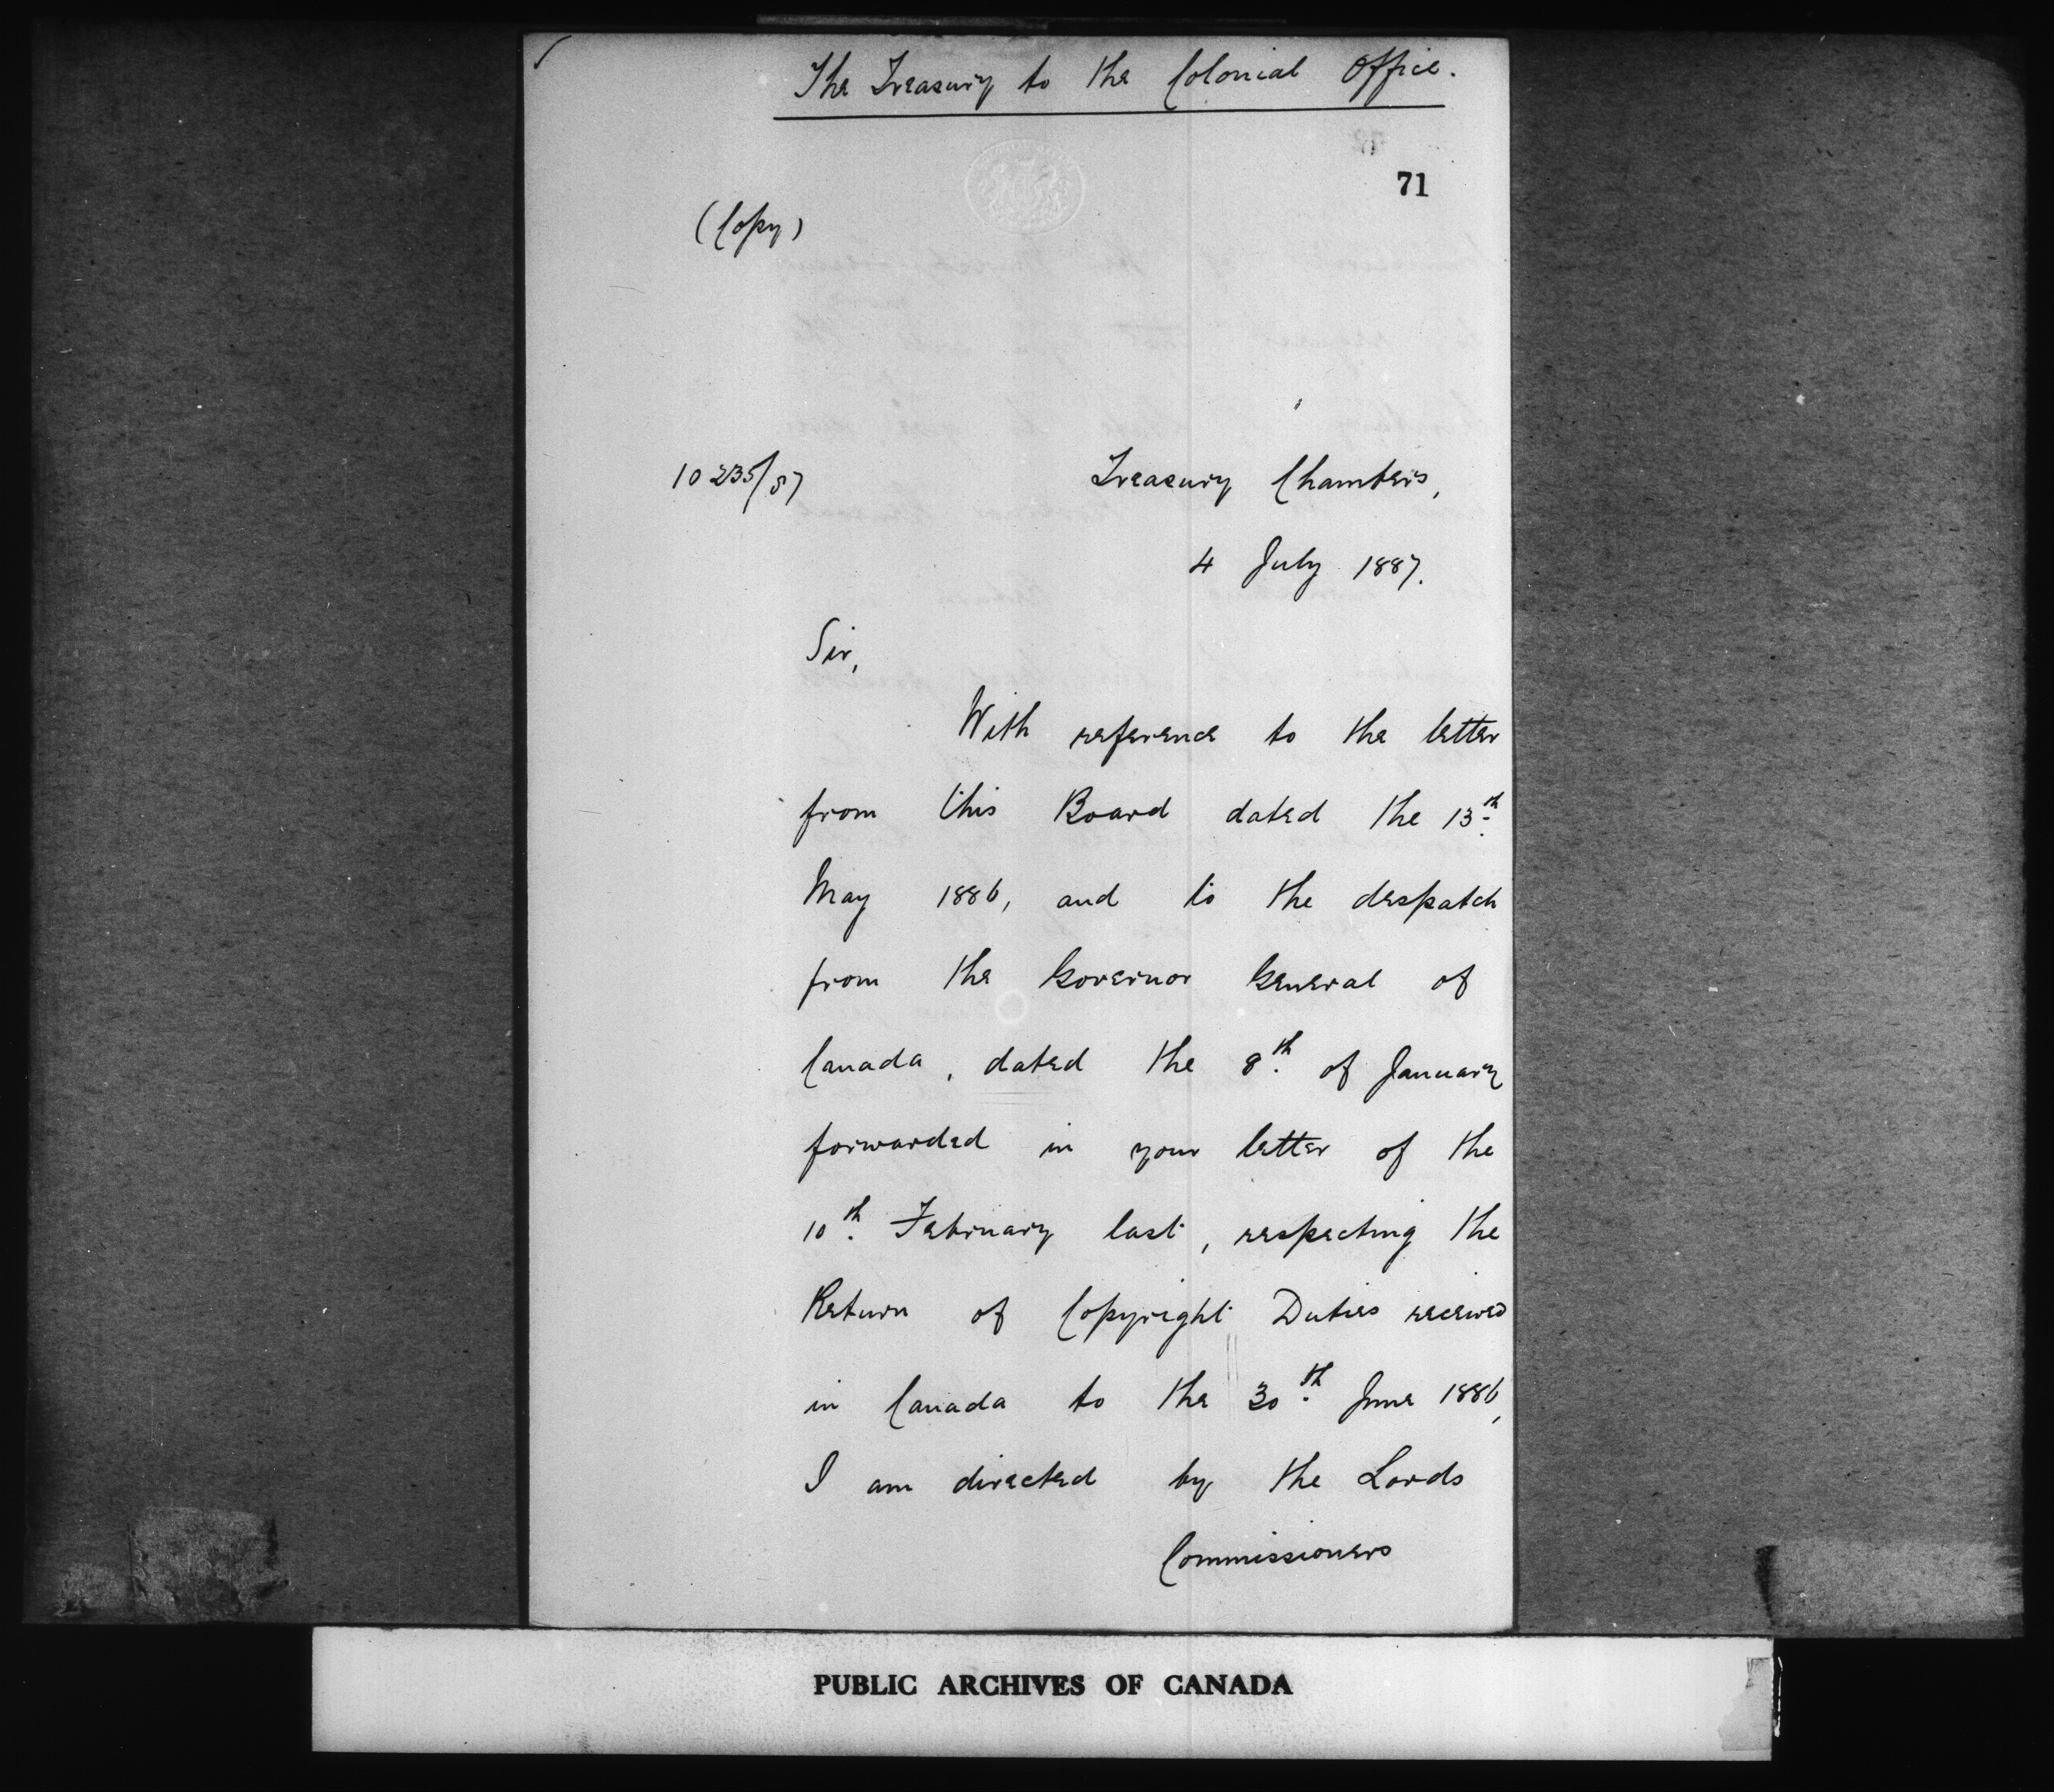 The Treasury to the Colonial Office.
71
(Copy)
10235/87
Treasury Chambers,
4 July 1887.
Sir,
With reference to the letter
from this Board dated the 13th
May 1886, and to the despatch
from the Governor General of
Canada, dated the 8th of January
forwarded in your letter of the
10th February last, respecting the
Return of Copyright Duties received
in Canada to the 30th June 1886,
I am directed by the Lords
Commissioners
PUBLIC ARCHIVES OF CANADA